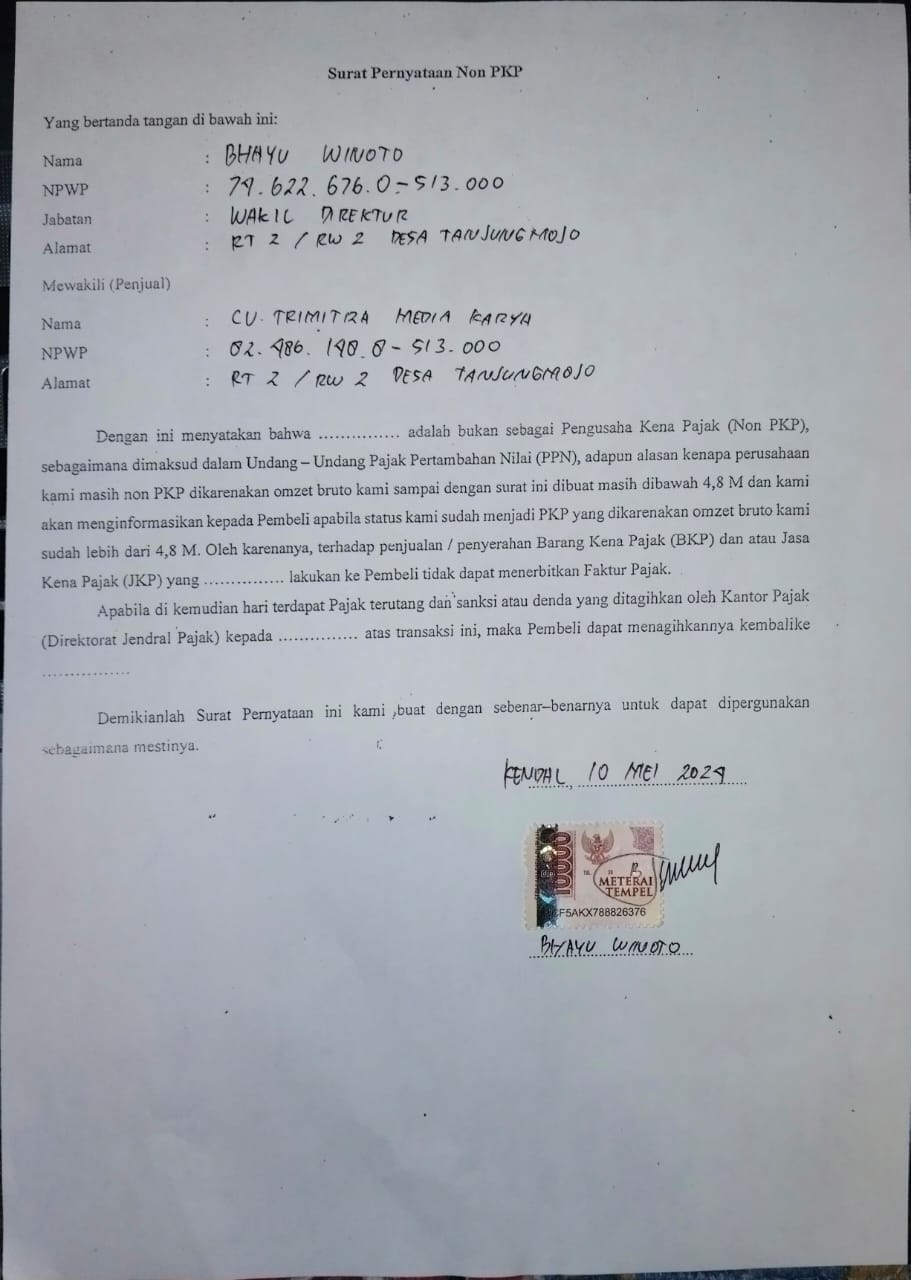 Surat Pernyataan Non PKP
Yang bertanda tangan di bawah ini:
Nama : BHAYU WINOTO
NPWP : 79.622.676.0-513.000
Jabatan : WAKIL DIREKTUR
Alamat : RT 2 / RW 2 DESA TANJUNGMOJO
Mewakili (Penjual)
Nama : CV. TRIMITRA MEDIA KARYA
NPWP : 02.486.140.0-513.000
Alamat : RT 2 / RW 2 DESA TANJUNGMOJO
Dengan ini menyatakan bahwa …………… adalah bukan sebagai Pengusaha Kena Pajak (Non PKP),
sebagaimana dimaksud dalam Undang – Undang Pajak Pertambahan Nilai (PPN), adapun alasan kenapa perusahaan
kami masih non PKP dikarenakan omzet bruto kami sampai dengan surat ini dibuat masih dibawah 4,8 M dan kami
akan menginformasikan kepada Pembeli apabila status kami sudah menjadi PKP yang dikarenakan omzet bruto kami
sudah lebih dari 4,8 M. Oleh karenanya, terhadap penjualan / penyerahan Barang Kena Pajak (BKP) dan atau Jasa
Kena Pajak (JKP) yang …………… lakukan ke Pembeli tidak dapat menerbitkan Faktur Pajak.
Apabila di kemudian hari terdapat Pajak terutang dan sanksi atau denda yang ditagihkan oleh Kantor Pajak
(Direktorat Jendral Pajak) kepada …………… atas transaksi ini, maka Pembeli dapat menagihkannya kembalike
……………
Demikianlah Surat Pernyataan ini kami buat dengan sebenar–benarnya untuk dapat dipergunakan
sebagaimana mestinya.
KENDAL, 10 MEI 2024
10000
METERAI
TEMPEL
CF5AKX788826376
BHAYU WINOTO